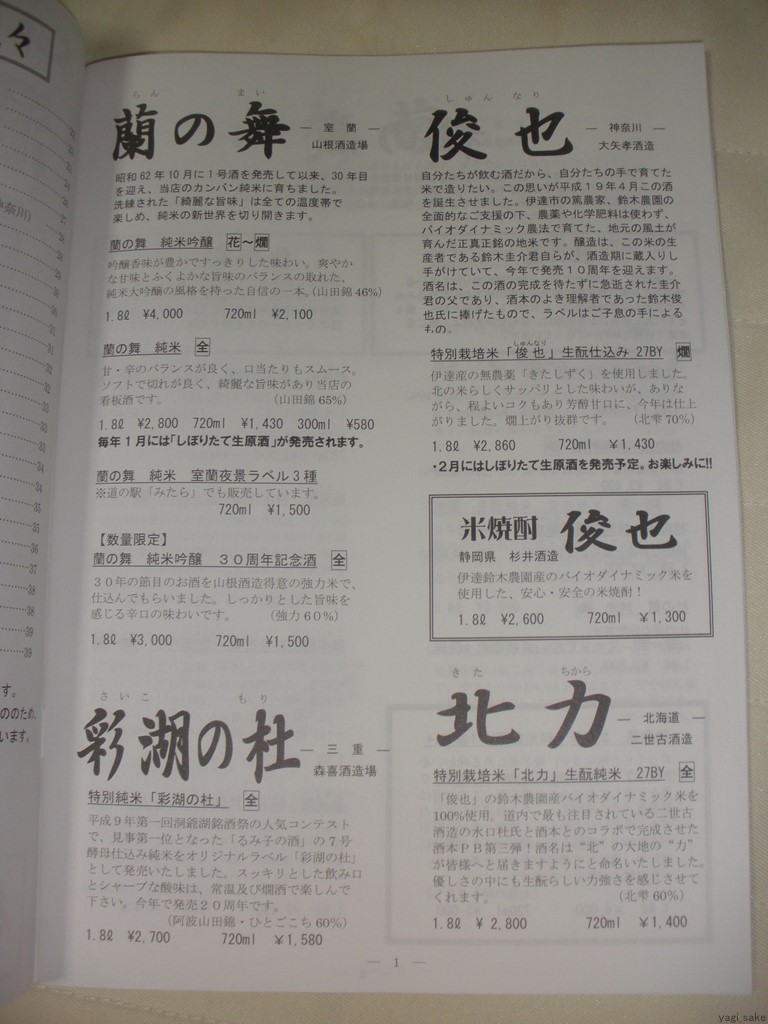 々
らん　まい
蘭の舞 ― 室蘭 ―
山根酒造場
昭和62年10月に1号酒を発売して以来、30年目
を迎え、当店のカンバン純米に育ちました。
洗練された「綺麗な旨味」は全ての温度帯で
楽しめ、純米の新世界を切り開きます。
蘭の舞　純米吟醸　花～燗
吟醸香味が豊かですっきりした味わい。爽やか
な甘味とふくよかな旨味のバランスの取れた、
純米大吟醸の風格を持った自信の一本。(山田錦46%)
1.8ℓ　¥4,000　720ml　¥2,100
蘭の舞　純米　全
甘・辛のバランスが良く、口当たりもスムース。
ソフトで切れが良く、綺麗な旨味があり当店の
看板酒です。　（山田錦65%）
1.8ℓ　¥2,800　720ml　¥1,430　300ml　¥580
毎年1月には「しぼりたて生原酒」が発売されます。
蘭の舞　純米　室蘭夜景ラベル3種
※道の駅「みたら」でも販売しています。
720ml　¥1,500
【数量限定】
蘭の舞　純米吟醸　３０周年記念酒　全
３０年の節目のお酒を山根酒造得意の強力米で、
仕込んでもらいました。しっかりとした旨味を
感じる辛口の味わいです。　（強力６０%）
1.8ℓ　¥3,000　720ml　¥1,500
さいこ　もり
彩湖の杜 ― 三重 ―
森喜酒造場
特別純米「彩湖の杜」　全
平成９年第一回洞爺湖銘酒祭の人気コンテスト
で、見事第一位となった「るみ子の酒」の７号
酵母仕込み純米をオリジナルラベル「彩湖の杜」
として発売いたしました。スッキリとした飲み口
とシャープな酸味は、常温及び燗酒で楽しんで
下さい。今年で発売２０周年です。
（阿波山田錦・ひとごこち60%）
1.8ℓ　¥2,700　720ml　¥1,580
しゅん　なり
俊也 ― 神奈川 ―
大矢孝酒造
自分たちが飲む酒だから、自分たちの手で育てた
米で造りたい。この思いが平成１９年４月この酒
を誕生させました。伊達市の篤農家、鈴木農園の
全面的なご支援の下、農薬や化学肥料は使わず、
バイオダイナミック農法で育てた、地元の風土が
育んだ正真正銘の地米です。醸造は、この米の生
産者である鈴木圭介君自らが、酒造期に蔵入りし
手がけていて、今年で発売１０周年を迎えます。
酒名は、この酒の完成を待たずに急逝された圭介
君の父であり、酒本のよき理解者であった鈴木俊
也氏に捧げたもので、ラベルはご子息の手による
もの。
しゅんなり
特別栽培米「俊也」生酛仕込み　27BY　燗
伊達産の無農薬「きたしずく」を使用しました。
北の米らしくサッパリとした味わいが、ありな
がら、程よいコクもあり芳醇甘口に、今年は仕上
がりました。燗上がり抜群です。　（北雫70%）
1.8ℓ　¥2,860　720ml　¥1,430
・２月にはしぼりたて生原酒を発売予定。お楽しみに!!
米焼酎　俊也
静岡県　杉井酒造
伊達鈴木農園産のバイオダイナミック米を
使用した、安心・安全の米焼酎！
1.8ℓ　¥2,600　720ml　¥1,300
きた　ちから
北力 ― 北海道 ―
二世古酒造
特別栽培米「北力」生酛純米　27BY　全
「俊也」の鈴木農園産バイオダイナミック米を
100%使用。道内で最も注目されている二世古
酒造の水口杜氏と酒本とのコラボで完成させた
酒本ＰＢ第三弾！酒名は“北”の大地の“力”
が皆様へと届きますようにと命名いたしました。
優しさの中にも生酛らしい力強さを感じさせて
くれます。　（北雫60%）
1.8ℓ　¥ 2,800　720ml　¥1,400
― 1 ―
yagi_sake